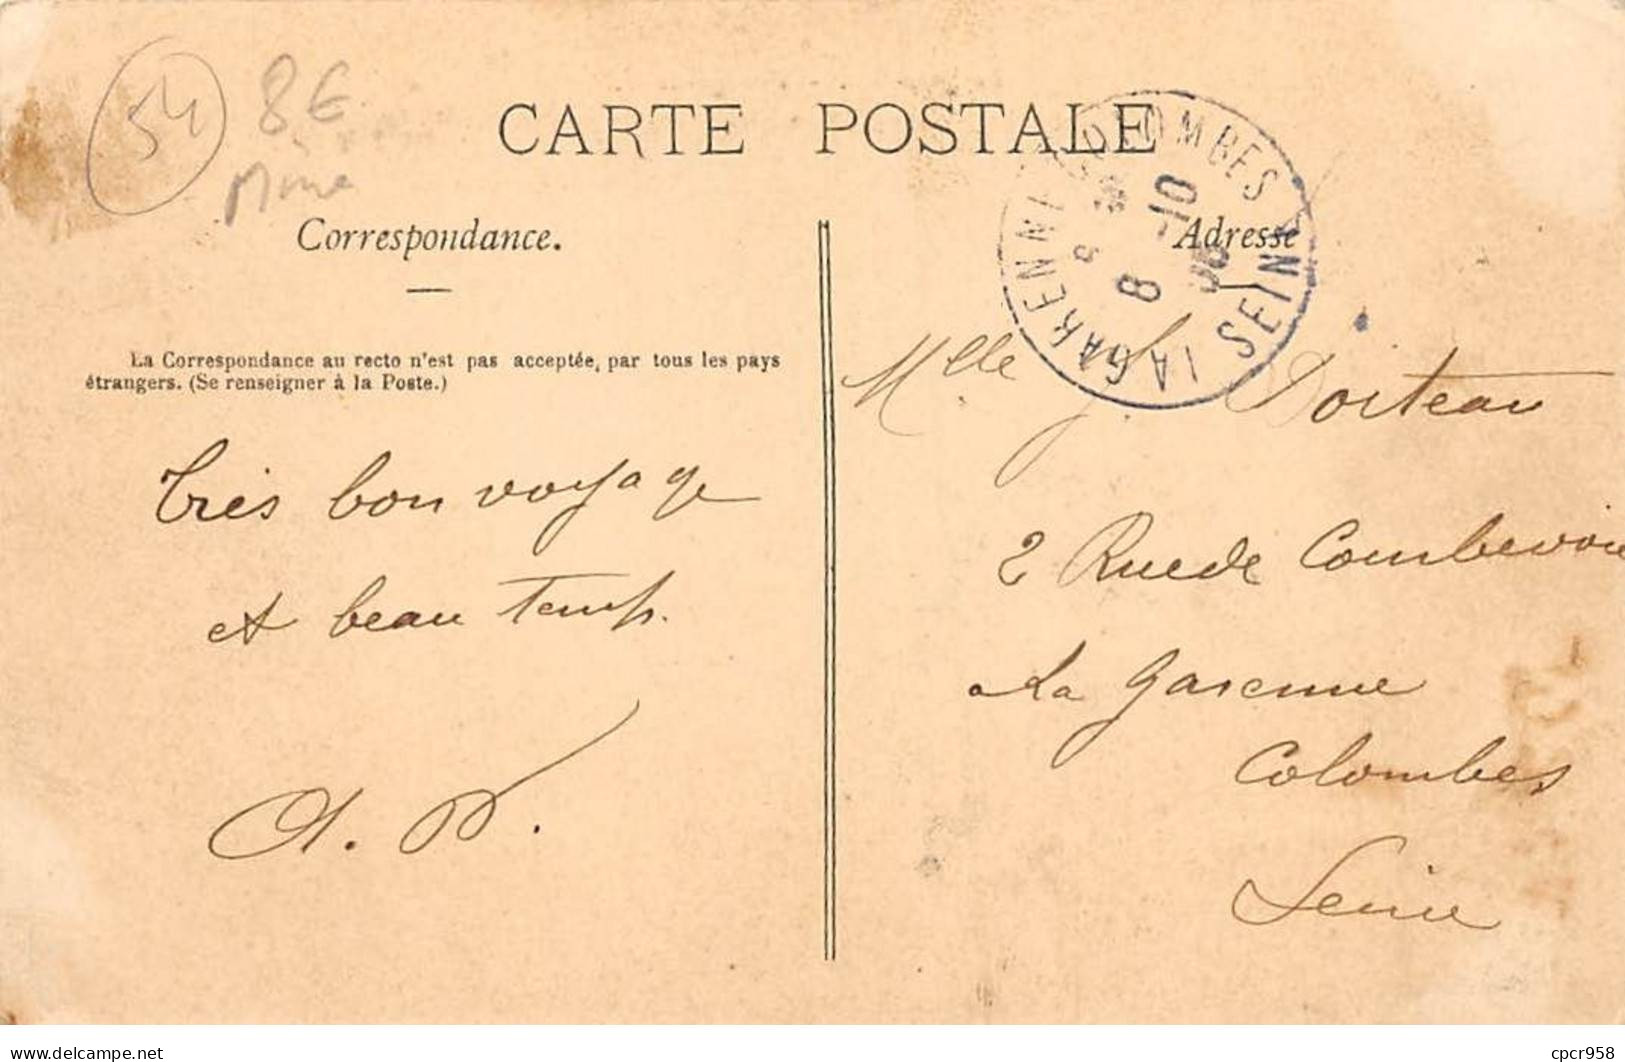 54
8€
Mine
CARTE POSTALE
LA GARENNE COLOMBES
8 -10
06
SEINE
Correspondance.
Adresse
La Correspondance au recto n'est pas acceptée, par tous les pays
étrangers. (Se renseigner à la Poste.)
Très bon voyage
et beau temps.
A. D.
Mlle J. Doiteau
2 Rue de Courbevoie
à La Garenne
Colombes
Seine
delcampe.net
cpcr958